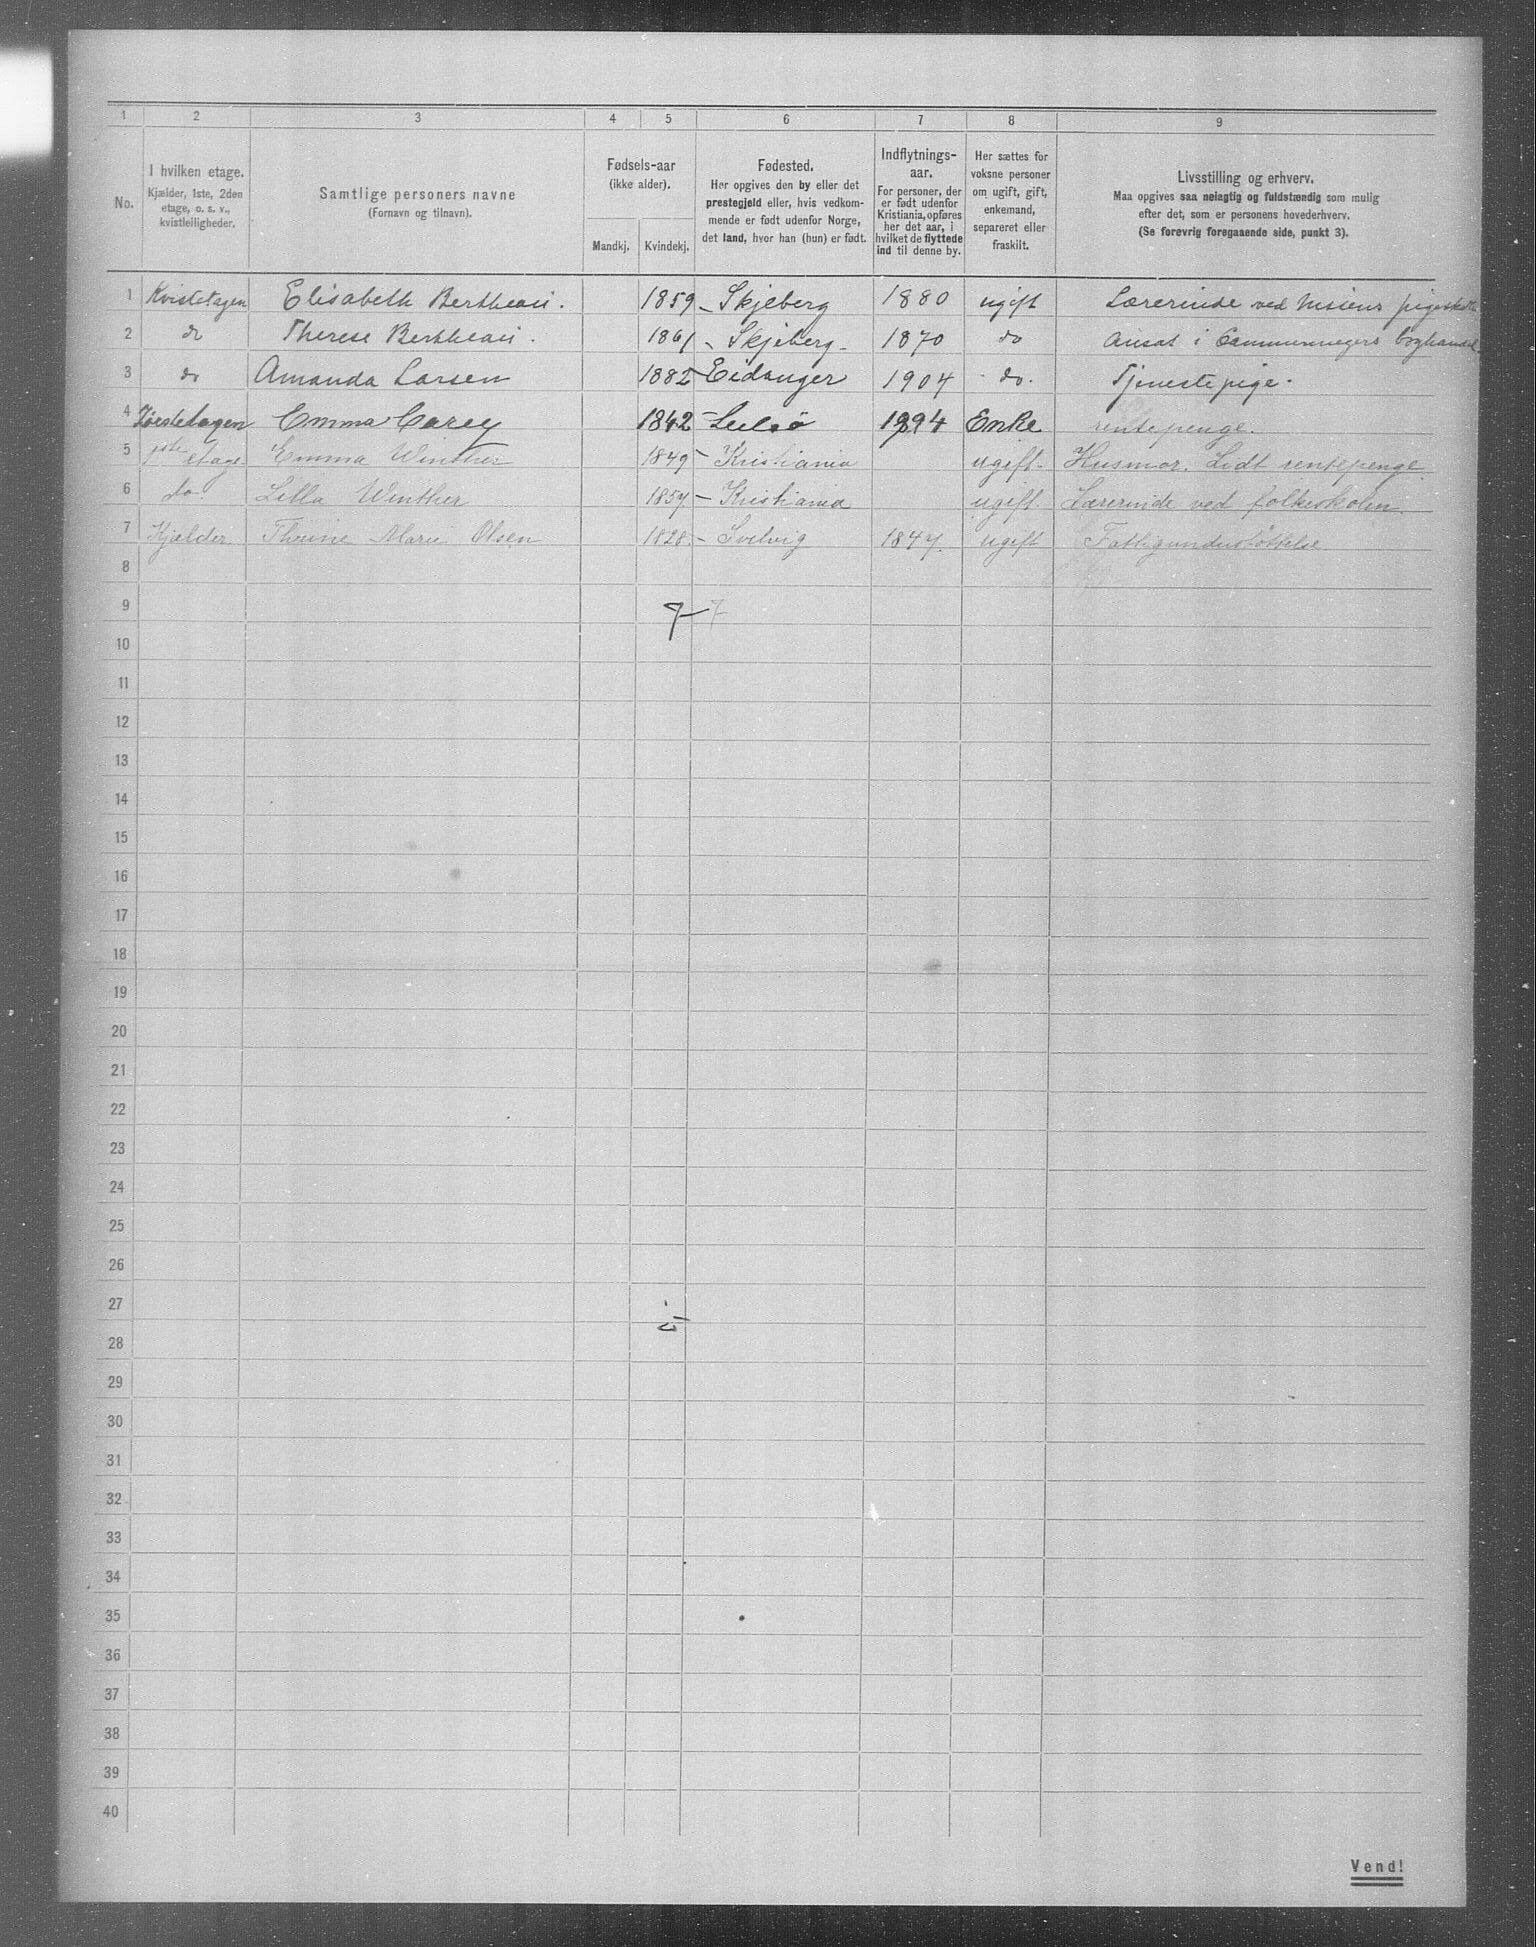 1 2 3 4 5 6 7 8 9
No.
I hvilken etage.
Kjælder, 1ste, 2den
etage, o. s. v.,
kvistleiligheder.
Samtlige personers navne
(Fornavn og tilnavn).
Fødsels-aar
(ikke alder).
Mandkj. Kvindekj.
Fødested.
Her opgives den by eller det
prestegjeld eller, hvis vedkom-
mende er født udenfor Norge,
det land, hvor han (hun) er født.
Indflytnings-
aar.
For personer, der
er født udenfor
Kristiania, opføres
her det aar, i
hvilket de flyttede
ind til denne by.
Her sættes for
voksne personer
om ugift, gift,
enkemand,
separeret eller
fraskilt.
Livsstilling og erhverv.
Maa opgives saa nøiagtig og fuldstændig som mulig
efter det, som er personens hovederhverv.
(Se forøvrig foregaaende side, punkt 3).
1 Kvistetagen Elisabeth Bertheau. 1859 – Skjeberg 1880 ugift Lærerinde ved
2 do Therese Bertheau. 1861 – Skjeberg – 1870 do Ansat i Cammermeyers boghandel
3 do Amanda Larsen 1882 – Eidanger 1904 do. Tjenestepige.
4 Emma Carey 1842 – 1894 Enke rentepenge.
5 1ste etage Emma Winther 1849 – Kristiania ugift. Husmor. Lidt rentepenge
6 do. Lilla Winther 1857 – Kristiania ugift. Lærerinde ved folkeskolen.
7 Kjælder Marie Olsen 1828. – Svelvig 1847. ugift Fattigunderstøttelse
8
9 7 – 7
10
11
12
13
14
15
16
17
18
19
20
21
22
23
24
25
26
27
28
29
30
31
32
33
34
35
36
37
38
39
40
Vend!